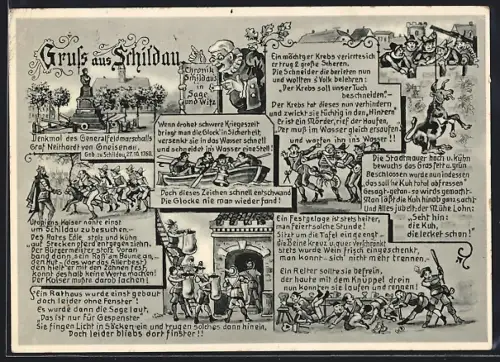 Gruss aus Schildau
Chronik
Schildaus
in
Sage
und Witz
Denkmal des Generalfeldmarschalls
Graf Neithardt von Gneisenau,
Geb. zu Schildau 27.10.1760.
Wenn drohet schwere Kriegeszeit
bringt man die Glock' in Sicherheit,
versenkt sie in das Wasser schnell
und schneidet ins Wasser eine Stell!
Doch dieses Zeichen schnell entschwand
Die Glocke nie man wieder fand!
Ein mächtger Krebs verirrte sich
er trug 2 große Scheren.
Die Schneider die berieten nun
und wollten s'Volk belehren:
"Der Krebs soll unser Tuch
beschneiden."
Der Krebs tat dieses nun verhindern
und zwickt sie tüchtig in den "Hintern"
Er ist ein Mörder, rief der Haufen,
Der muß im Wasser gleich ersaufen
und warfen ihn ins Wasser!!
Die Stadtmauer hoch u. kühn
bewuchs das Gras fett u. grün
Beschlossen wurde nun indessen
das soll die Kuh total abfressen
Gesagt-getan-so wirds gemacht-
Man zieht die Kuh hinauf ganz sacht
Und Alles jubelt der Mühe Lohn:
"Seht hin:
die Kuh,
die lecket schon!"
Utopiens Kaiser nahte einst
um Schildau zu besuchen.-
Des Rates Edle stets sind kühn
auf Stecken pferd entgegen ziehn.
Der Bürgermeister, stolz Voran
band dann, sein Roß am Baume an,
den Hut - (das war das Allerbest)
den hielt er mit den Zähnen fest,
Konnt deshalb keine Werte machen!
Der Kaiser mußte darob lachen!
Ein Rathaus wurde einst gebaut
doch leider ohne Fenster!
Es wurde dann die Sage laut,
"Das ist nur für Gespenster"
Sie fingen Licht in Säcken ein und trugen solches dann hinein,
Doch leider bliebs dort finster!!
Ein Festgelage ist stets heiter,
man feiert solche Stunde!
Sitzt um die Tafel eingeengt
die Beine kreuz u. quer verschränkt
stets wurde Wein frisch eingeschenkt,
man konnt-sich nicht mehr trennen.-
Ein Reiter sollte sie befrein,
der haute mit dem Knüppel drein
nun konnten sie laufen und rennen!